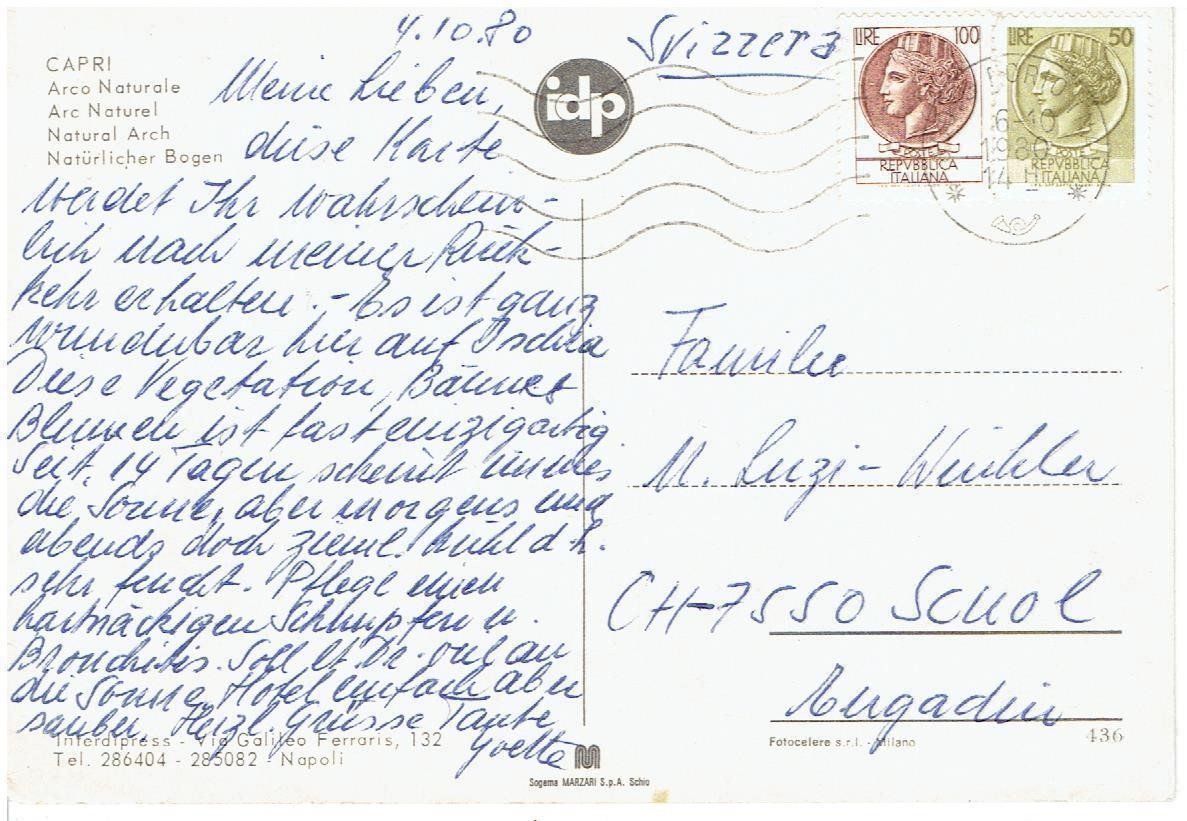 4.10.80
Svizzera
CAPRI
Arco Naturale
Arc Naturel
Natural Arch
Natürlicher Bogen
idp
LIRE 100
REPVBBLICA
ITALIANA
LIRE 50
REPVBBLICA
ITALIANA
6-10
1980
14
Meine Lieben,
diese Karte
werdet Ihr wahrschein-
lich nach meiner Rück-
kehr erhalten. - Es ist ganz
wunderbar hier auf Ischia
Diese Vegetation, Bäume
Blumen ist fast einzigartig.
Seit 14 Tagen scheint immer
die Sonne, aber morgens und
abends doch zieml. kühl d.h.
sehr feucht. Pflege einen
hartnäckigen Schnupfen u.
Bronchitis. Soll lt. Dr. viel an
die Sonne. Hotel einfach aber
sauber. Herzl. Grüsse Tante
Yvette
Familie
M. Luzi-Winkler
CH-7550 Scuol
Engadin
Interdipress - Via Galileo Ferraris, 132
Tel. 286404 - 285082 - Napoli
Sogema MARZARI S.p.A. Schio
Fotocelere s.r.l. - Milano
436